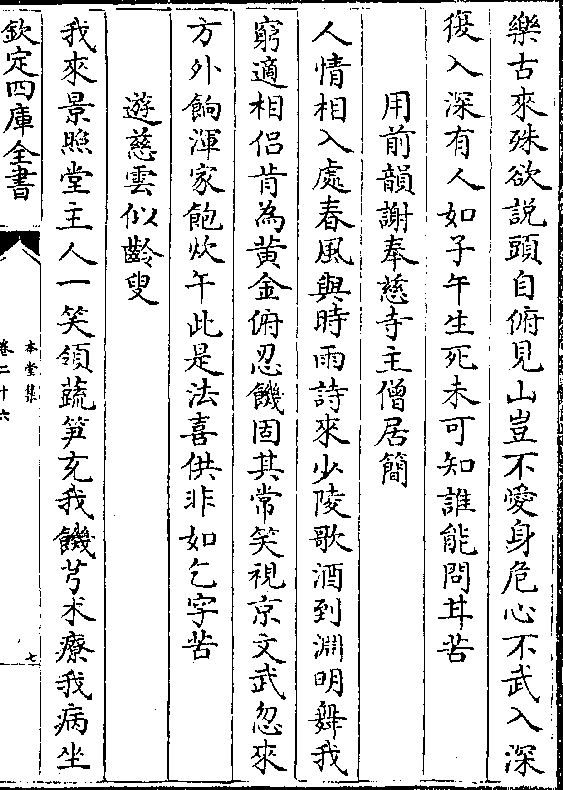 樂古來殊欲説頭自俯見山豈不愛身危心不武入深
復入深有人如子午生死未可知誰能問甘苦
用前韻謝奉慈寺主僧居簡
人情相入處春風與時雨詩來少陵歌酒到淵明舞我
窮適相侣肯為黄金俯忍饑固其常笑視京文武忽來
方外餉渾家飽炊午此是法喜供非如乞字苦
遊慈雲似齡叟
我來景照堂主人一笑領蔬笋充我饑芎术療我病坐
欽定四庫全書
本堂集
卷二十六
七